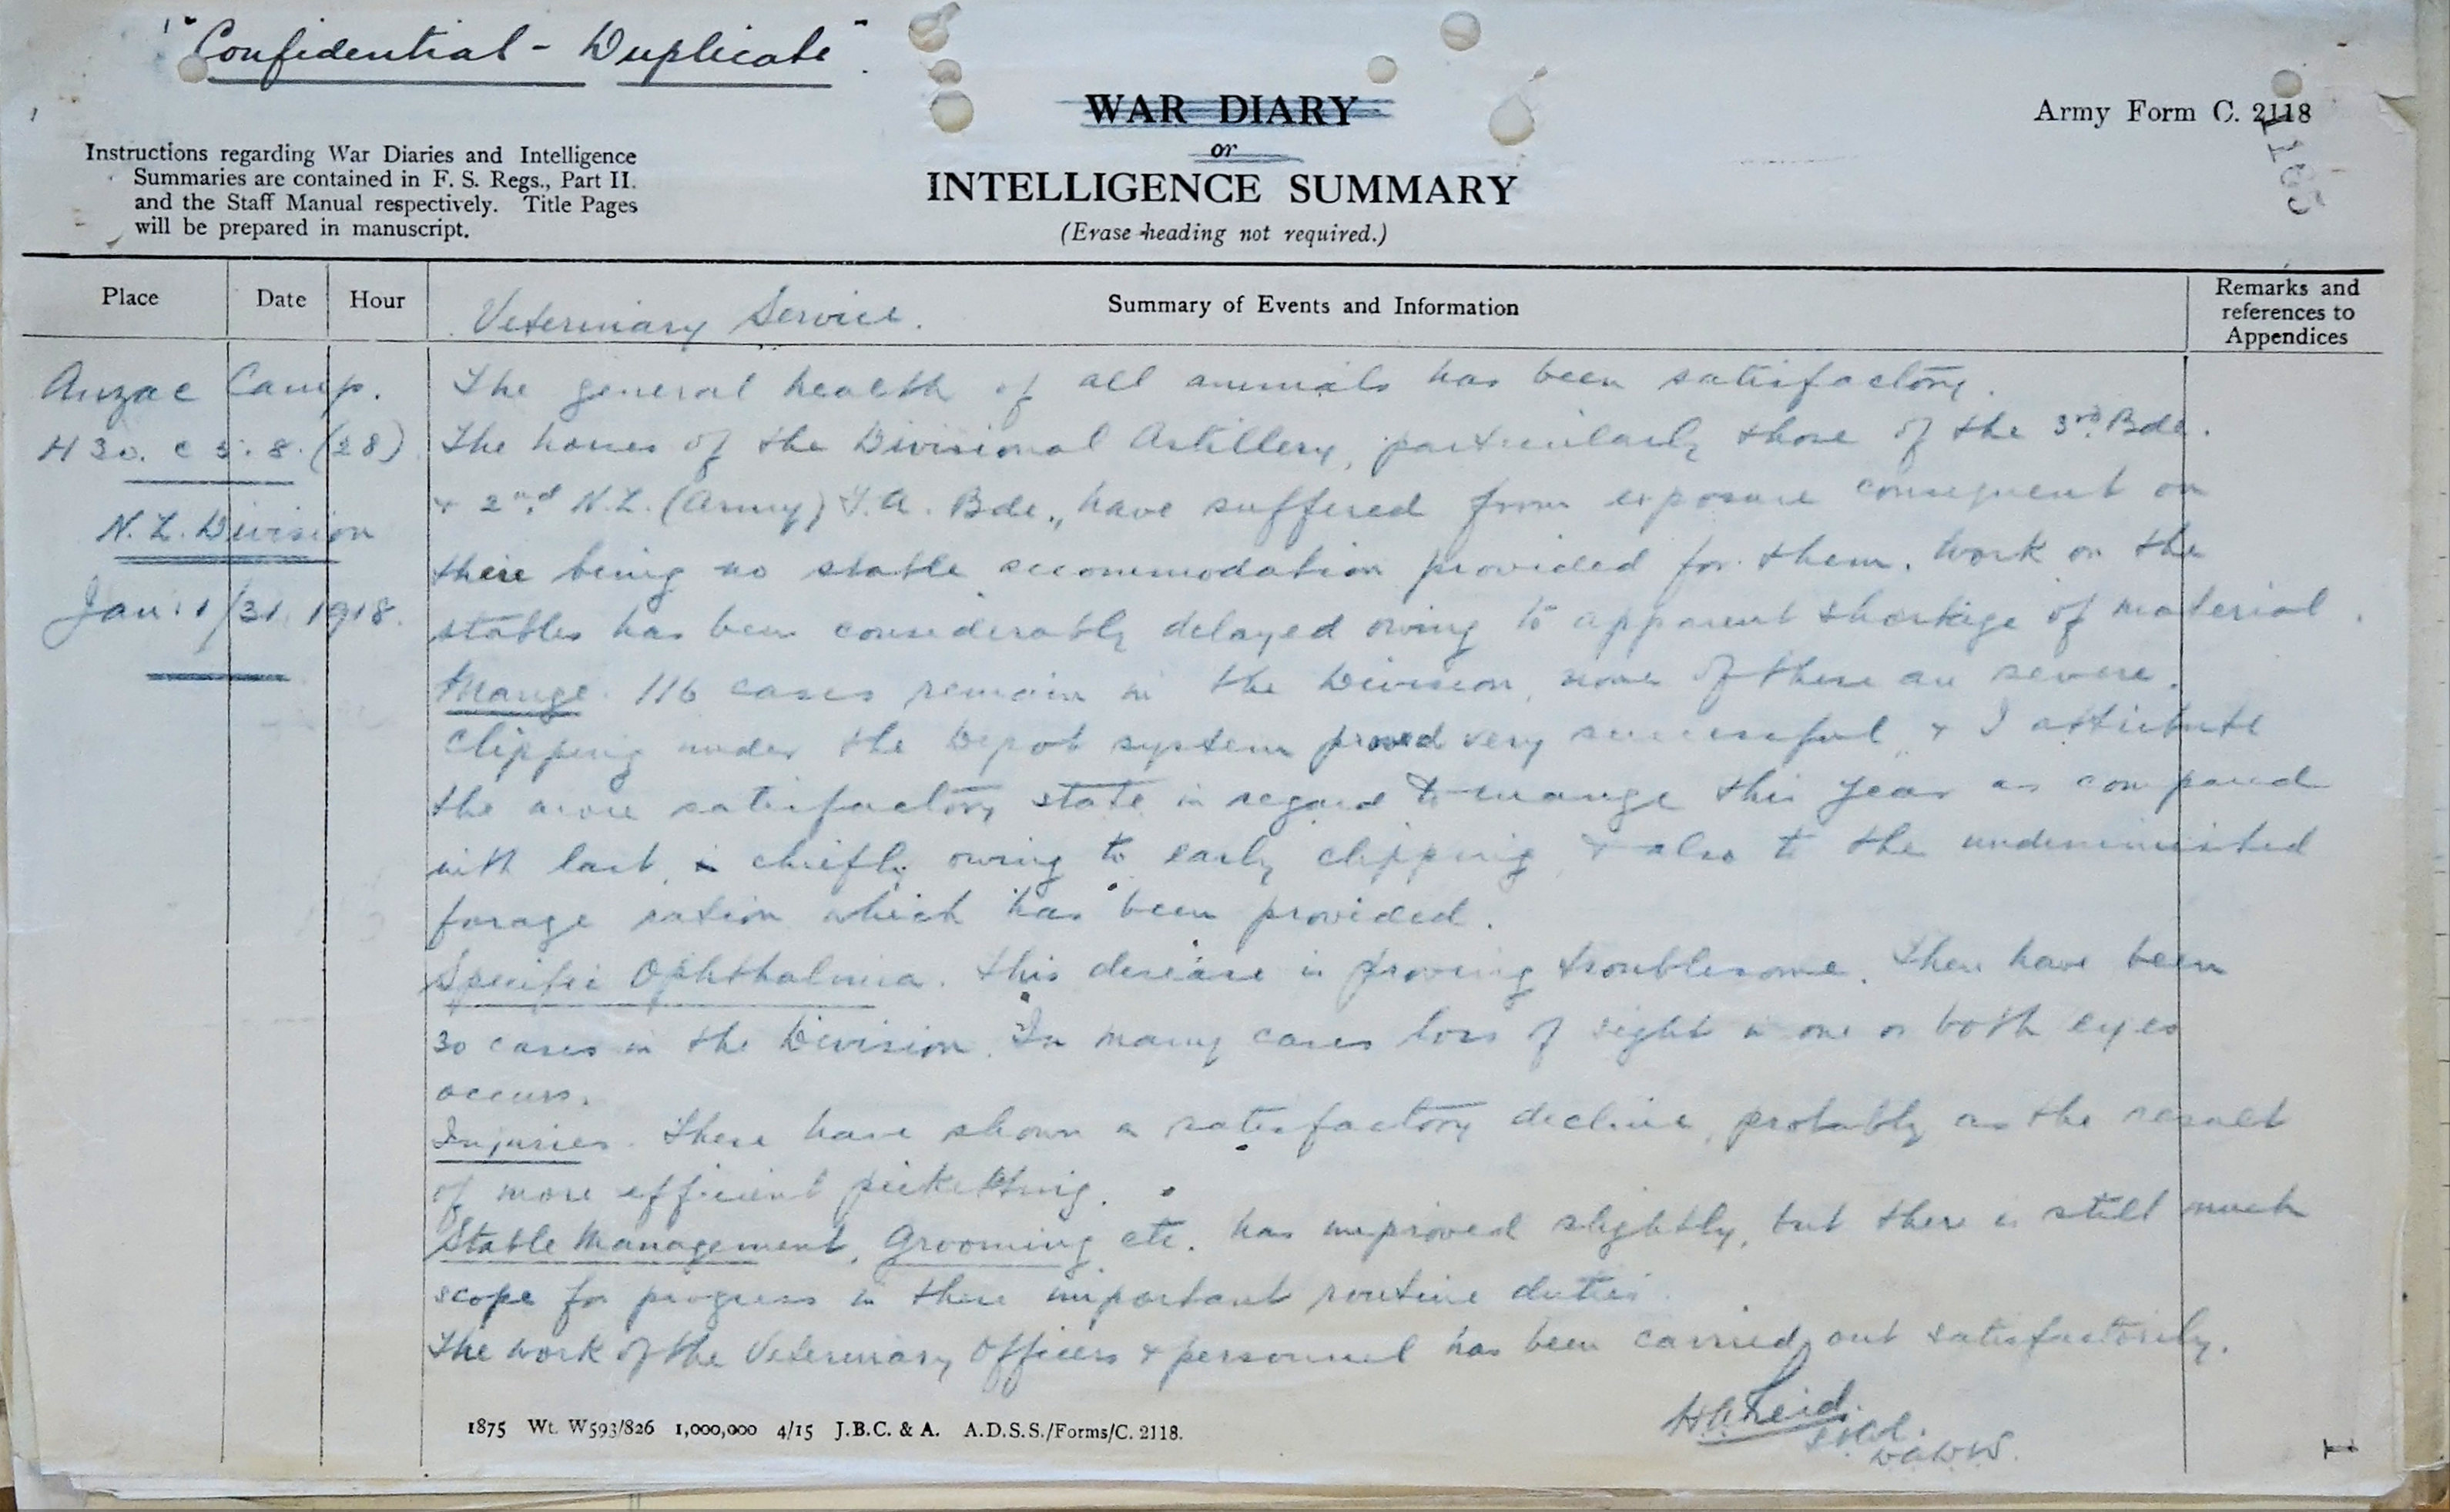 "Confidential - Duplicate".
WAR DIARY
or
INTELLIGENCE SUMMARY
(Erase heading not required.)
Army Form C. 2118
Instructions regarding War Diaries and Intelligence
Summaries are contained in F. S. Regs., Part II.
and the Staff Manual respectively. Title Pages
will be prepared in manuscript.
Place Date Hour Summary of Events and Information
Remarks and
references to
Appendices
Veterinary Service.
Anzac Camp.
H 30. c 5. 8. (28)
N. Z. Division
Jan: 1/31. 1918.
The general health of all animals has been satisfactory.
The horses of the Divisional Artillery, particularly those of the 3rd. Bde.
+ 2nd N.Z. (Army) F.A. Bde., have suffered from exposure consequent on
there being no stable accommodation provided for them. Work on the
stables has been considerably delayed owing to apparent shortage of material.
Mange. 116 cases remain in the Division, none of these are severe.
Clipping under the Depot system proved very successful + I attribute
the more satisfactory state in regard to mange this year as compared
with last, is chiefly owing to early clipping + also to the undiminished
forage ration which has been provided.
Specific Ophthalmia. This disease is proving troublesome. There have been
30 cases in the Division. In many cases loss of sight in one or both eyes
occurs.
Injuries. These have shown a satisfactory decline, probably as the result
of more efficient picketting.
Stable Management, Grooming etc. has improved slightly, but there is still much
scope for progress in these important routine duties.
The work of the Veterinary Officers + personnel has been carried out satisfactorily.
H.A. Reid.
1875 Wt. W593/826 1,000,000 4/15 J.B.C. & A. A.D.S.S./Forms/C. 2118.